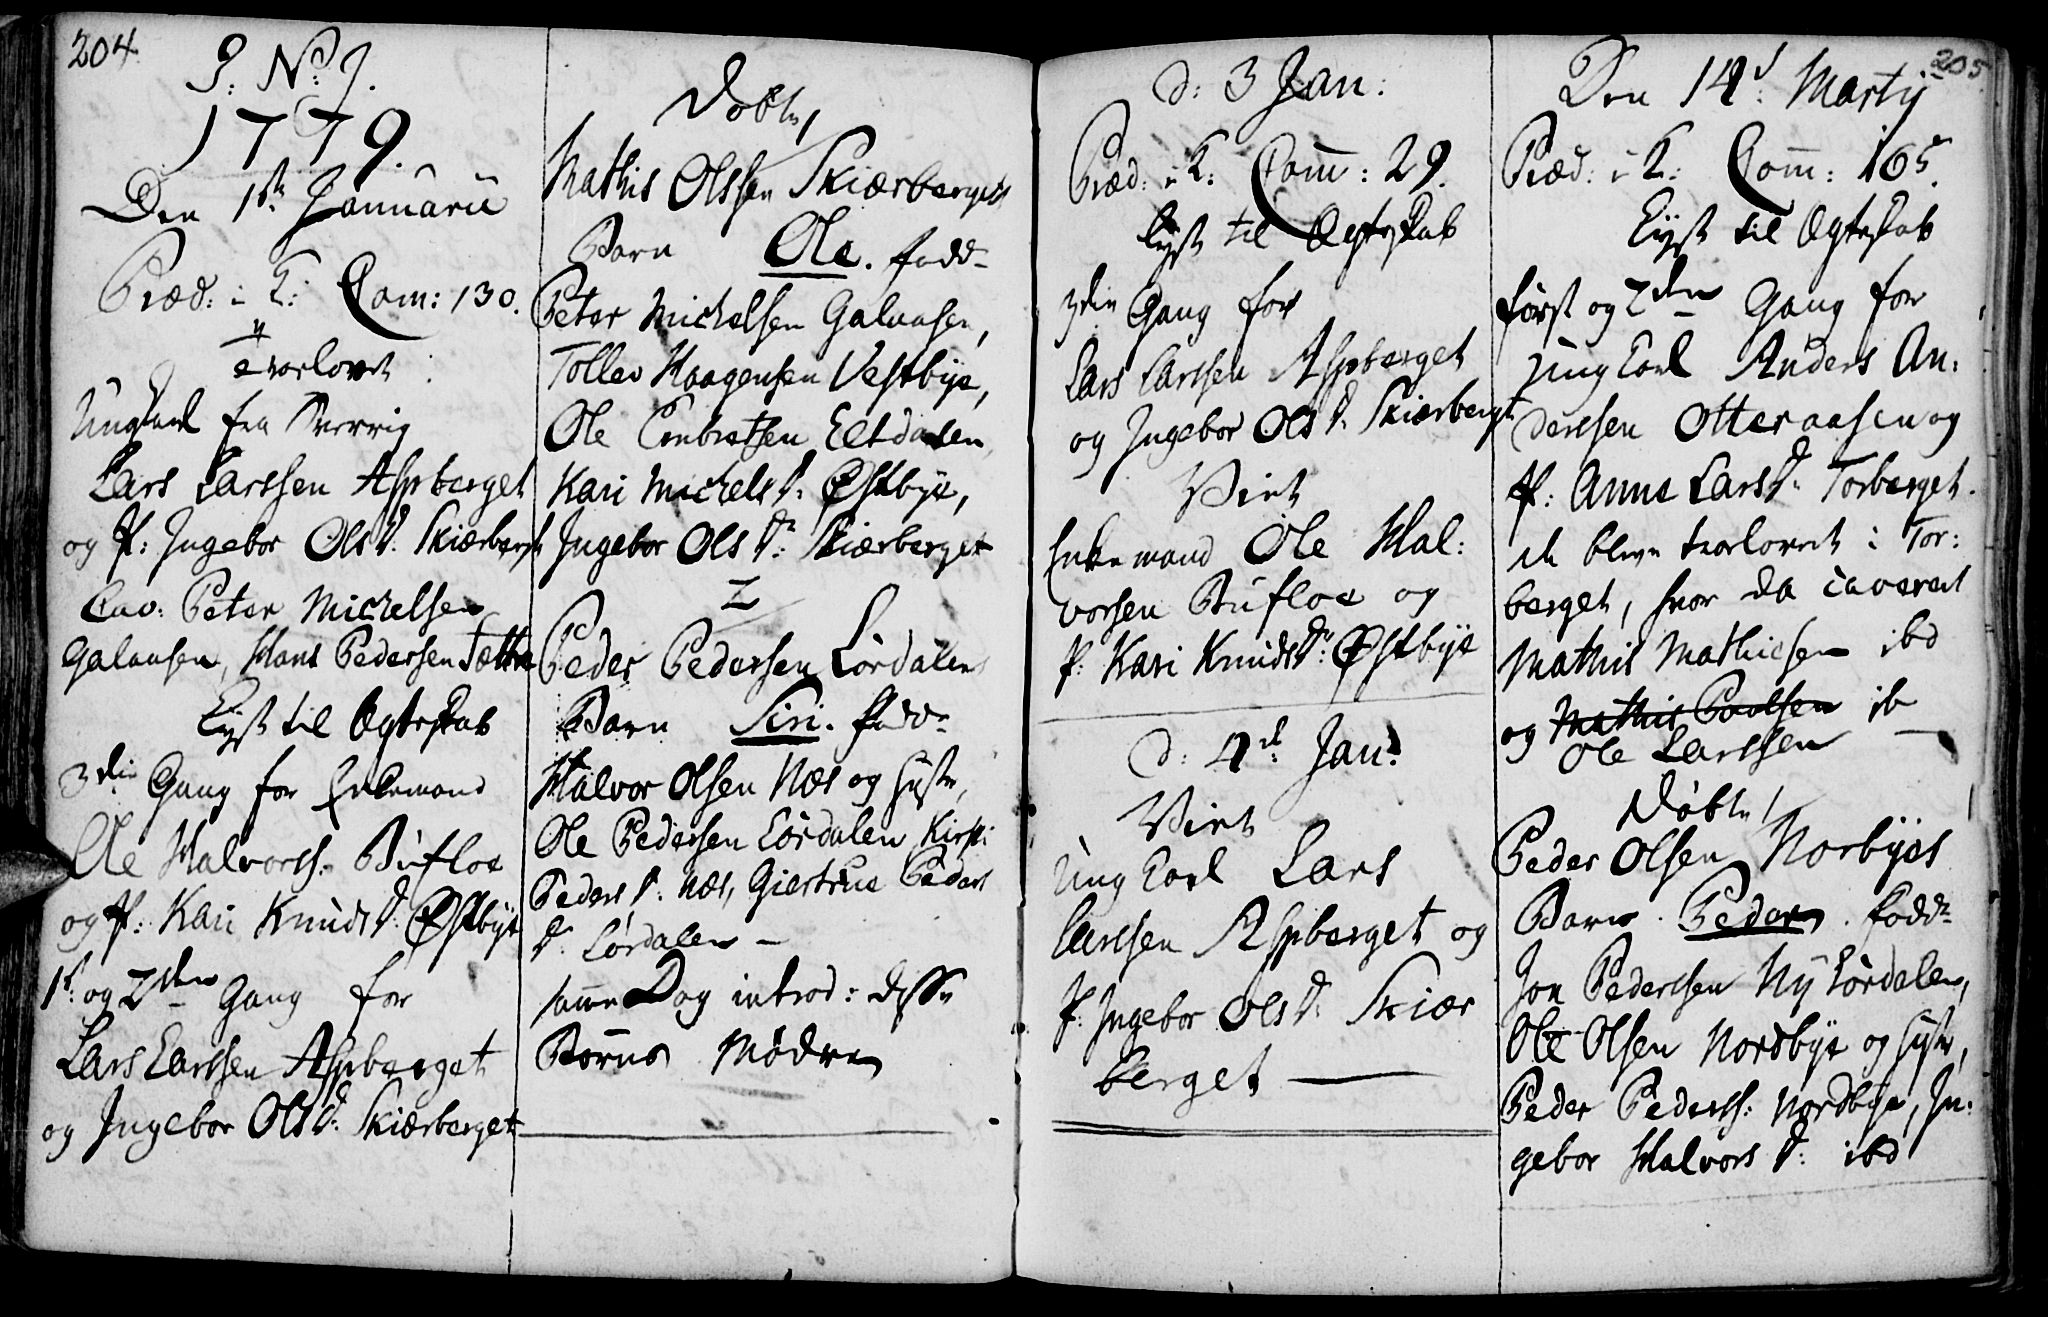 204
J: N: J.
1779.
Den 1ste Januarii
Præd: i T: Com: 130.
Trorlovet
Ungkarl fra Sverrig
Lars Larssen Aspberget
og P: Ingebor Ols D: Skiærberget
Cav: Peter Michelsen
Galaasen, Hans Pedersen Sættre
Lyst til Ægteskab
3die Gang for Enkemand
Ole Halvorss: Bufloe
og P: Kari Knuds D: Østbye
1st og 2den Gang for
Lars Larssen Aspberget
og Ingebor Ols D: Skiærberget
Døbte,
Mathis Olssen Skiærbergets
Barn Ole. fadd-
Peter Michelsen Galaasen,
Tollev Haagensen Vestbye,
Ole Embretsen Eltdalen
Kari Michels D: Østbye,
Ingebor Ols Dr: Skiærberget
2
Peder Pedersen Lørdalens
Barn Siri. fadd-
Halvor Olsen Næs og hustr,
Ole Pedersen Lørdalen, Kirsti
Peders D: Næs, Giertrue Peders
D: Lørdalen -
samme Dag introd: disse
Børns Mødre
d: 3 Jan:
Præd: i T: Comm: 29.
Lyst til Ægteskab
3die Gang for
Lars Larssen Aspberget
og Ingebor Ols D: Skiærberget
Viet
Enkemand Ole Hal:
vorsen Bufloe og
P: Kari Knuds D: Østbye
d: 4de Jan:
Viet
Ung Karl Lars
Larssen Aspberget og
P: Ingebor Ols D: Skiær
berget
205
Den 14d: Martij
Præd: i T: Comm: 165.
Lyst til Ægteskab
først og 2den Gang for
Ung Karl Anders An:
dersen Otteraasen og
P: Anne Lars D: Torberget.
de bleve trorlovet i Tor:
berget, hvor da caverede
Mathis Mathiesen ibd
og Mathis Paalsen ib
Ole Larssen
Døbte
Peder Olsen Norbyes
Barn. Peder. fadd-
Jon Pedersen Ny Lørdalen,
Ole Olsen Nordbye og hustr,
Peder Pederss: Nordbye, In:
gebor Halvors D: ibd